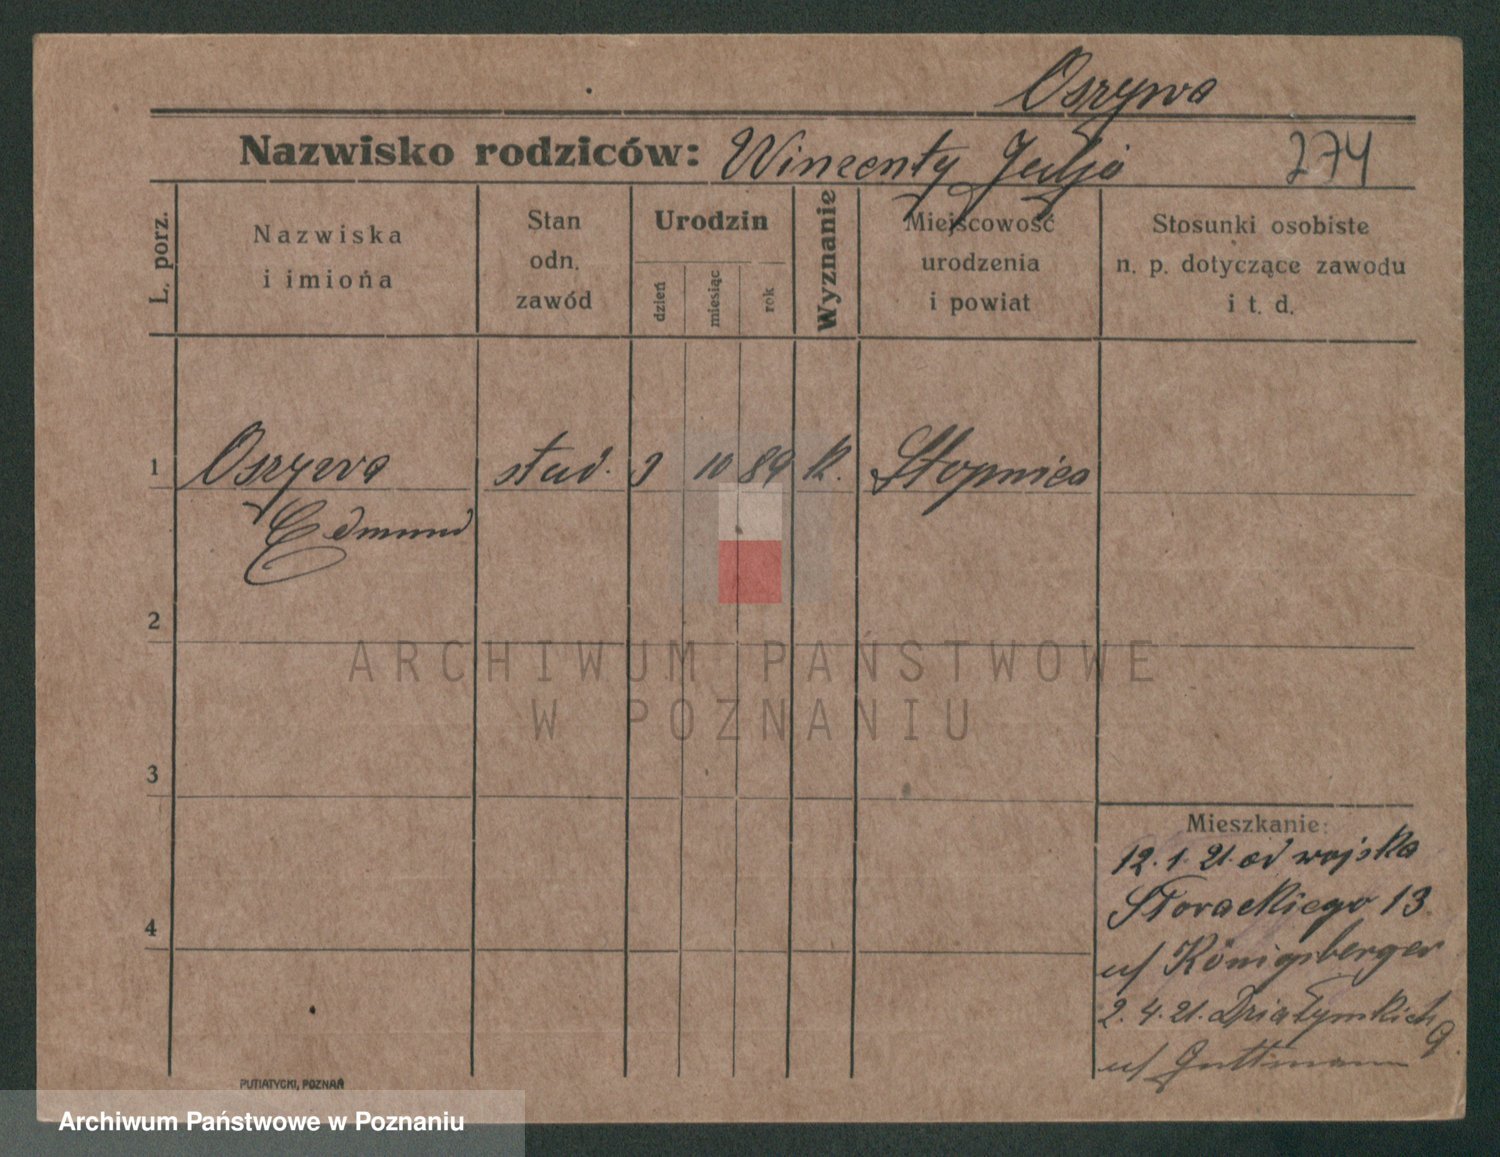 Oszywa
Nazwisko rodziców: Winzenty Julja 274
L. porz.
Nazwiska
i imiona
Stan
odn.
zawód
Urodzin
dzień
miesiąc
rok
Wyznanie
Miejscowość
urodzenia
i powiat
Stosunki osobiste
n. p. dotyczące zawodu
i t. d.
1 Oszywa stud. 9 10 89 k. Stopnica
Edmund
2
ARCHIWUM PAŃSTWOWE
W POZNANIU
3
Mieszkanie:
12. 1. 21. od wojska
Słorackiego 13
4
u/ Königsberger
2. 4. 21. Działymkich 9.
u/ Guttmann
PUTIATYCKI, POZNAŃ
Archiwum Państwowe w Poznaniu